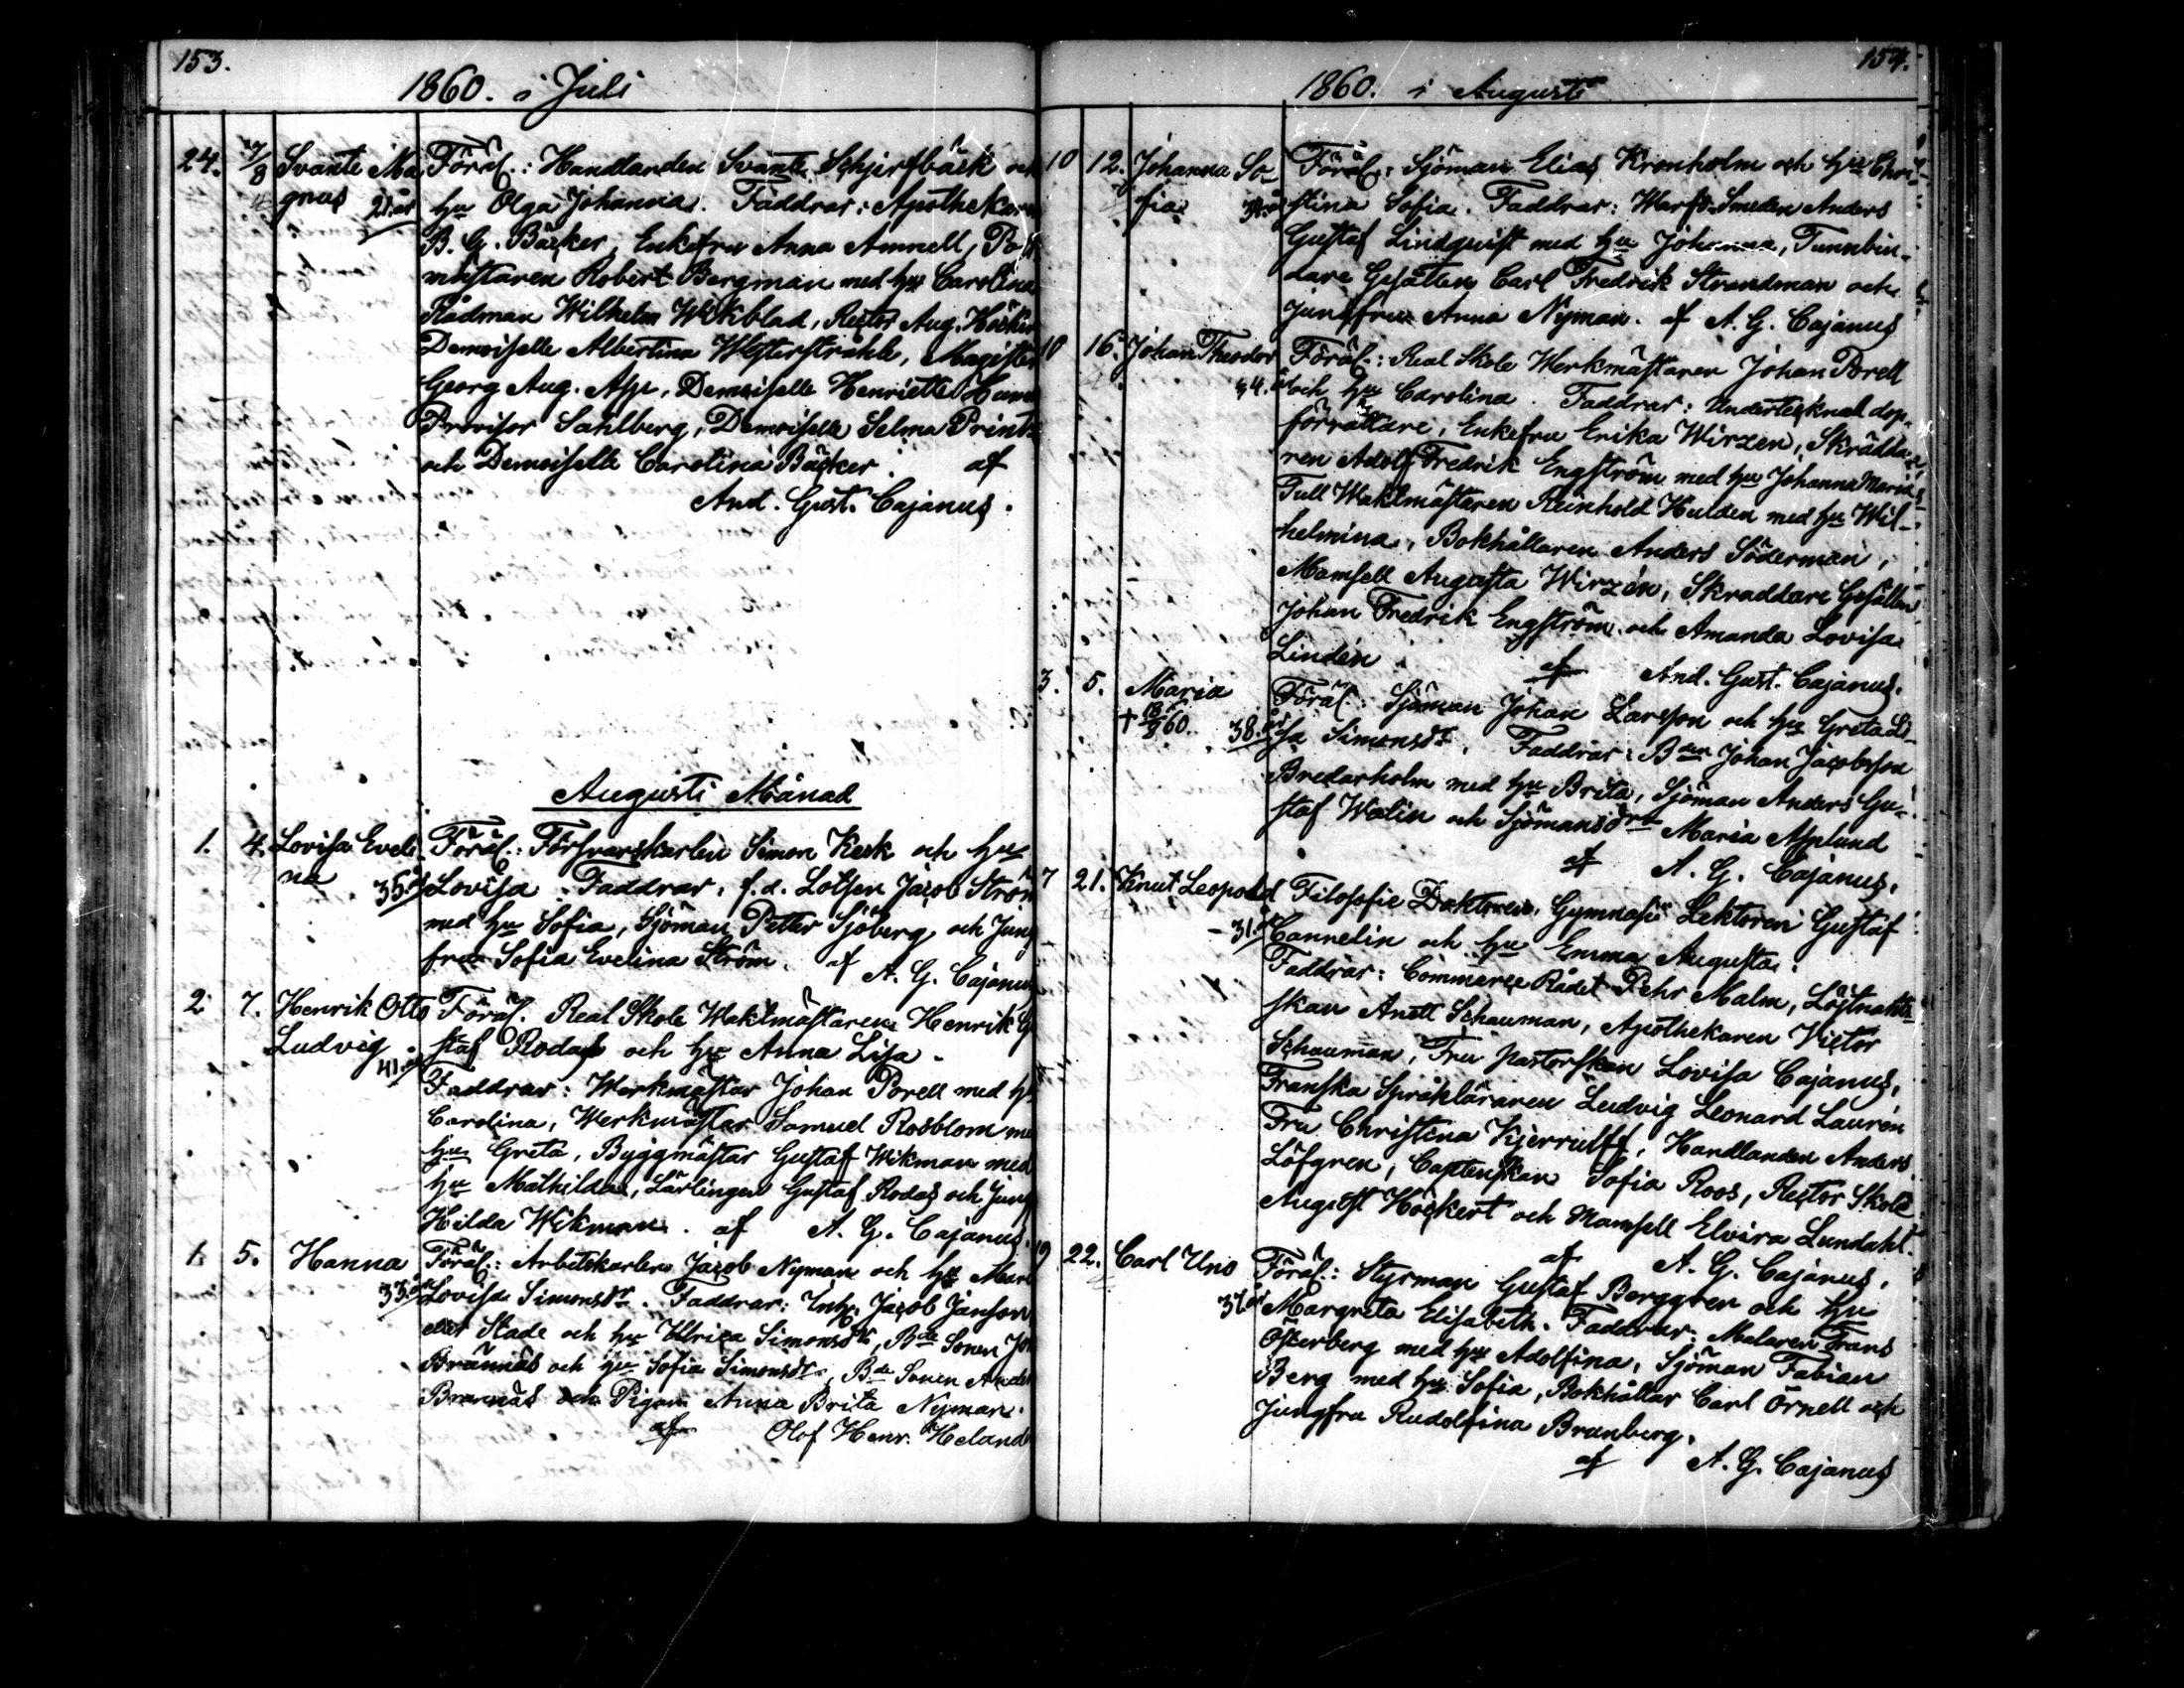 153.
1860. i Juli
24. 7/8 Svante Ma Föräl.: Handlanden Svante Schjerfbäck och
gnus 21.år hu Olga Johanna. Faddrar: Apothekaren
B. G. Bäcker, Enkefru Anna Amnell, Post
mästaren Robert Bergman med hu Carolina
Rådman Wilhelm Wikblad, Rector Aug. Höcker
Demoiselle Albertina Westerstråhle, Magister
Georg Aug. Asp, Demoiselle Henriette
Provisor Sahlberg, Demoiselle Selma Printz
och Demoiselle Carolina Bäcker. af
And. Gust. Cajanus.
Augusti Månad
1. 4. Lovisa Eveli Föräl.: Försvarskarlen Simon Keck och hu
na 35.år Lovisa. Faddrar: f.d. Lotsen Jacob Ström
med hu Sofia, Sjöman Petter Sjöberg och Jung
fru Sofia Evelina Ström. af A. G. Cajanus
2 7. Henrik Otto Föräl. Real Skole Waktmästaren Henrik Gu
Ludvig. 41.år staf Rodas och hu Anna Lisa.
Faddrar: Werkmästar Johan Porell med hu
Carolina, Werkmästar Samuel Rosblom med
hu Greta, Byggmästar Gustaf Wikman med
hu Mathilda, Lärlingen Gustaf Rodas och Jungf
Hilda Wikman. af A. G. Cajanus.
1. 5. Hanna Föräl.: Arbetskarlen Jacob Nyman och hu Mari
33.år Lovisa Simonsdr. Faddrar: Inh. Jacob Janson
Stade och hu Ulrica Simonsdtr, Bde Sonen Joh
Brännäs och hu Sofia Simonsdr, Bde Sonen Ander
Brännäs och Pigan Anna Brita Nyman.
af Olof Henr. Helande
154.
1860. i Augusti
10 12. Johanna So- Föräl.: Sjöman Elias Kronholm och hu Chri-
fia. stina Sofia. Faddrar: Warfs-Smeden Anders
Gustaf Lindqvist med hu Johanna, Tunnbin-
dare Gesällen Carl Fredrik Strandman och
jungfru Anna Nyman. af A. G. Cajanus
10 16. Johan Theodor Föräl.: Real Skole Werkmästaren Johan Porell
34.år och hu Carolina. Faddrar: Undertecknad dop-
förrättare, Enkefru Erika Wirzen, Skrädda-
ren Adolf Fredrik Engström med hu Johanna Maria
Tull Waktmästaren Reinhold Hulden med hu Wil-
helmina, Bokhållaren Anders Söderman,
Mamsell Augusta Wirzén, Skräddare Gesällen
Johan Fredrik Engström och Amanda Lovisa
Lindén. af And. Gust. Cajanus.
3. 5. Maria Föräl.: Sjöman Johan Larsson och hu Greta Li-
† 13/8 60. 38.år sa Simonsdr. Faddrar: Bden Johan Jacobsson
Bredarholm med hu Brita, Sjöman Anders Gu-
staf Walin och Sjömansdtr Maria Asplund
af A. G. Cajanus.
7 21. Knut Leopold Filosofie Doktoren, Gymnasii Lektoren Gustaf
31.år Cannelin och hu Emma Augusta.
Faddrar: Commerce Rådet Pehr Malm, Löjtnants-
skan Anett Schauman, Apothekaren Victor
Schauman, Fru pastorskan Lovisa Cajanus,
Franska Språkläraren Ludvig Leonard Laurén
Fru Christina Kjerrulff, Handlanden Anders
Löfgren, Captenskan Sofia Roos, Rector Skole
August Höckert och Mamsell Elvira Lundahl.
af A. G. Cajanus.
19 22. Carl Uno Föräl.: Styrman Gustaf Berggren och hu
37.år Margreta Elisabeth. Faddrar: Malaren Frans
Österberg med hu Adolfina, Sjöman Fabian
Berg med hu Sofia, Bokhållar Carl Örnell och
Jungfru Rudolfina Brunberg.
af A. G. Cajanus